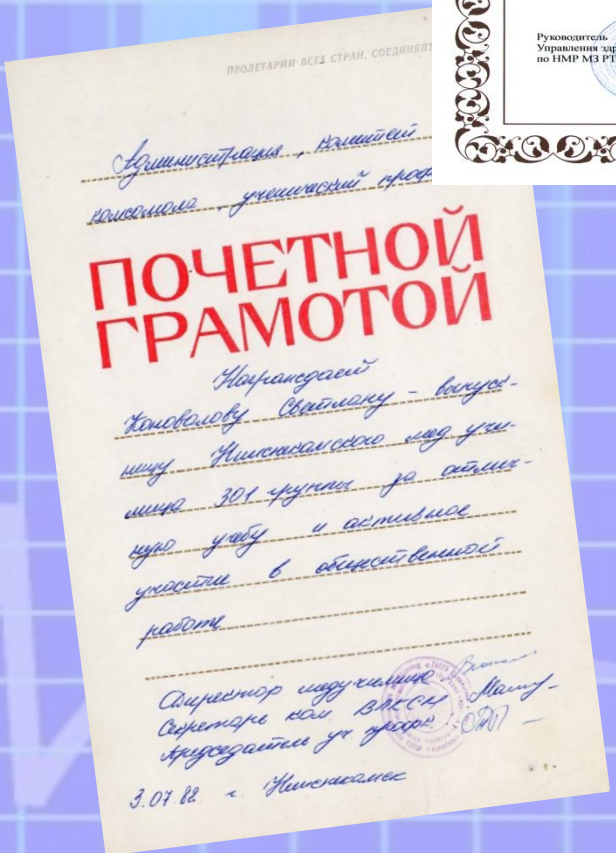 Руководитель
Управления здр
по НМР МЗ РТ
ПРОЛЕТАРИИ ВСЕХ СТРАН, СОЕДИНЯЙТ
Администрация, комитет
комсомола, ученический проф
ПОЧЕТНОЙ
ГРАМОТОЙ
Награждает
Коновалову Светлану – выпуск-
ницу Нижнекамского мед учи-
лища 301 группы за отлич-
ную учебу и активное
участие в общественной
работе
Директор медучилища
Секретарь ком. ВЛКСМ
Председатель уч. профк.
3.07.82 г. Нижнекамск